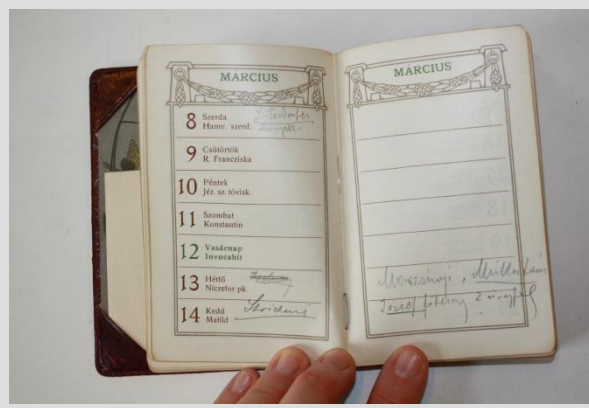 MÁRCIUS
8 Szerda
Hamv. szerd.
9 Csütörtök
R. Francziska
10 Péntek
Jéz. sz. tövisk.
11 Szombat
Konstantin
12 Vasárnap
Invocabit
13 Hétfő
Niczefor pk.
14 Kedd
Matild
MÁRCIUS
József